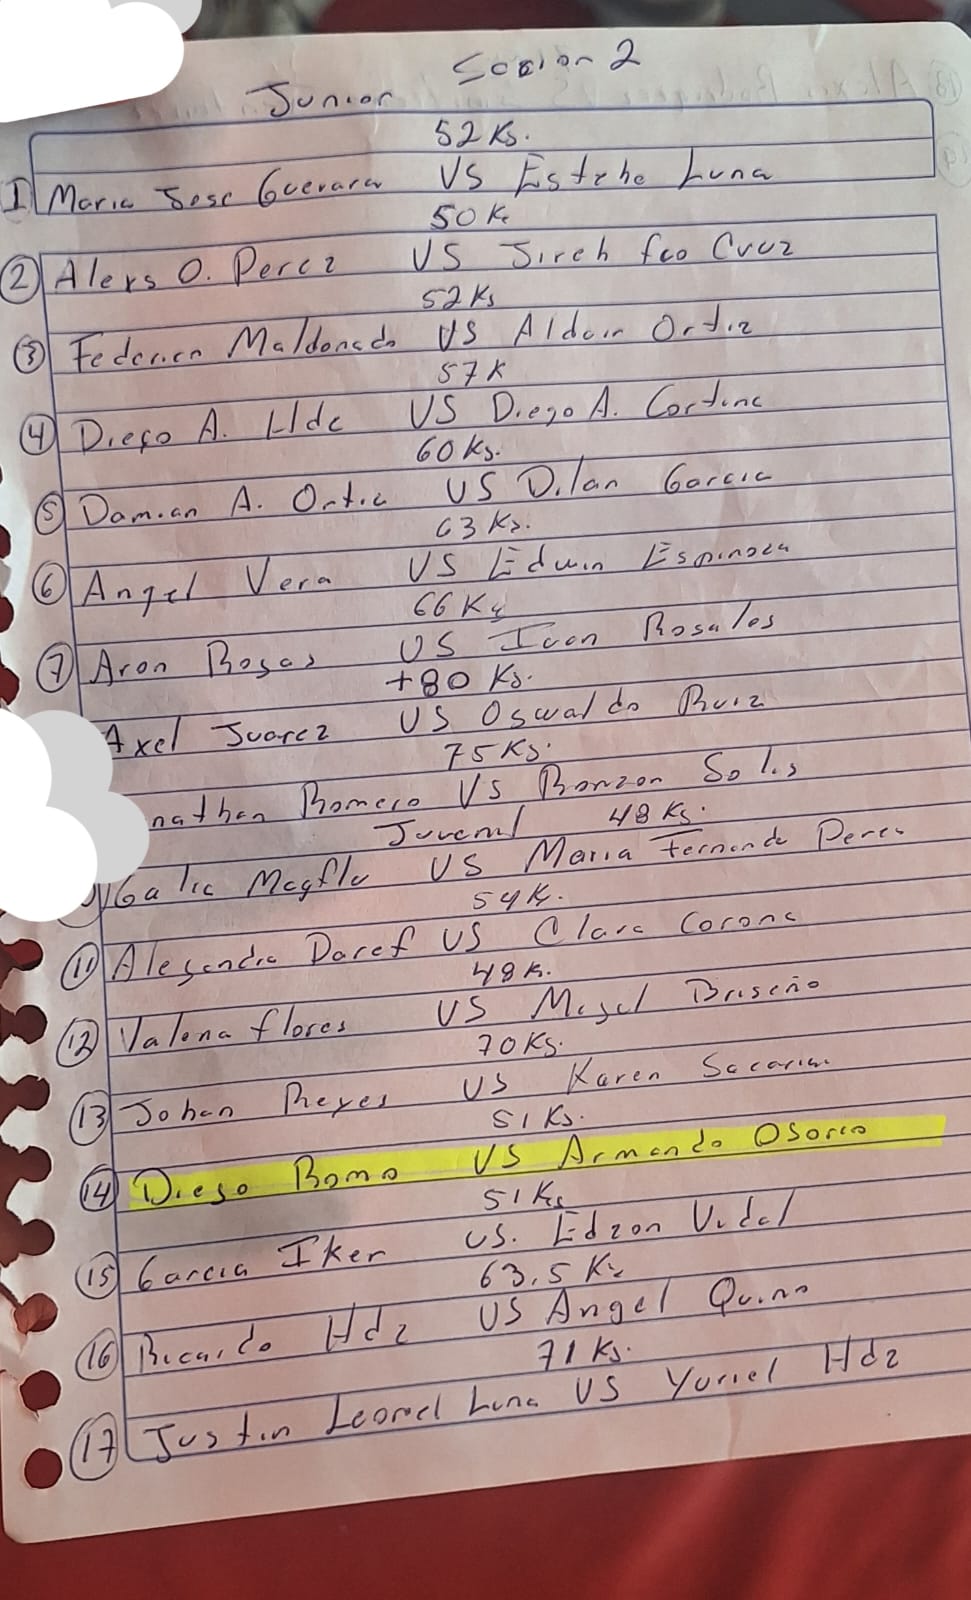 Sesion 2
Junior
52 Ks.
1 Maria Jose Guevara VS Estebe Luna
50 K
② Alexs O. Perez VS Jireh fco Cruz
52 Ks
③ Federico Maldonado VS Aldair Ortiz
57 K
④ Diego A. VS Diego A. Cortine
60 Ks.
⑤ Damian A. Ortiz VS Dilan Garcia
63 Ks.
⑥ Angel Vera VS Edwin Espinoza
66 Ks
⑦ Aron Rosas VS Ivan Rosales
+80 Ks.
Axel Juarez VS Oswaldo Ruiz
75 Ks.
nathan Romero VS Solis
Juvenil 48 Ks.
VS Maria Fernanda Perez
54 K.
⑪ Alesandra VS Clara Corona
48 K.
⑫ Valeria flores VS Briseño
70 Ks.
⑬ Johan Reyes VS Karen
51 Ks.
⑭ Diego Romo VS Armando Osorio
51 Ks
⑮ Garcia Iker VS. Edzon Vidal
63.5 Ks
⑯ Ricardo Hdz VS Angel Quino
71 Ks.
⑰ Justin Leonel Luna VS Yuriel Hdz